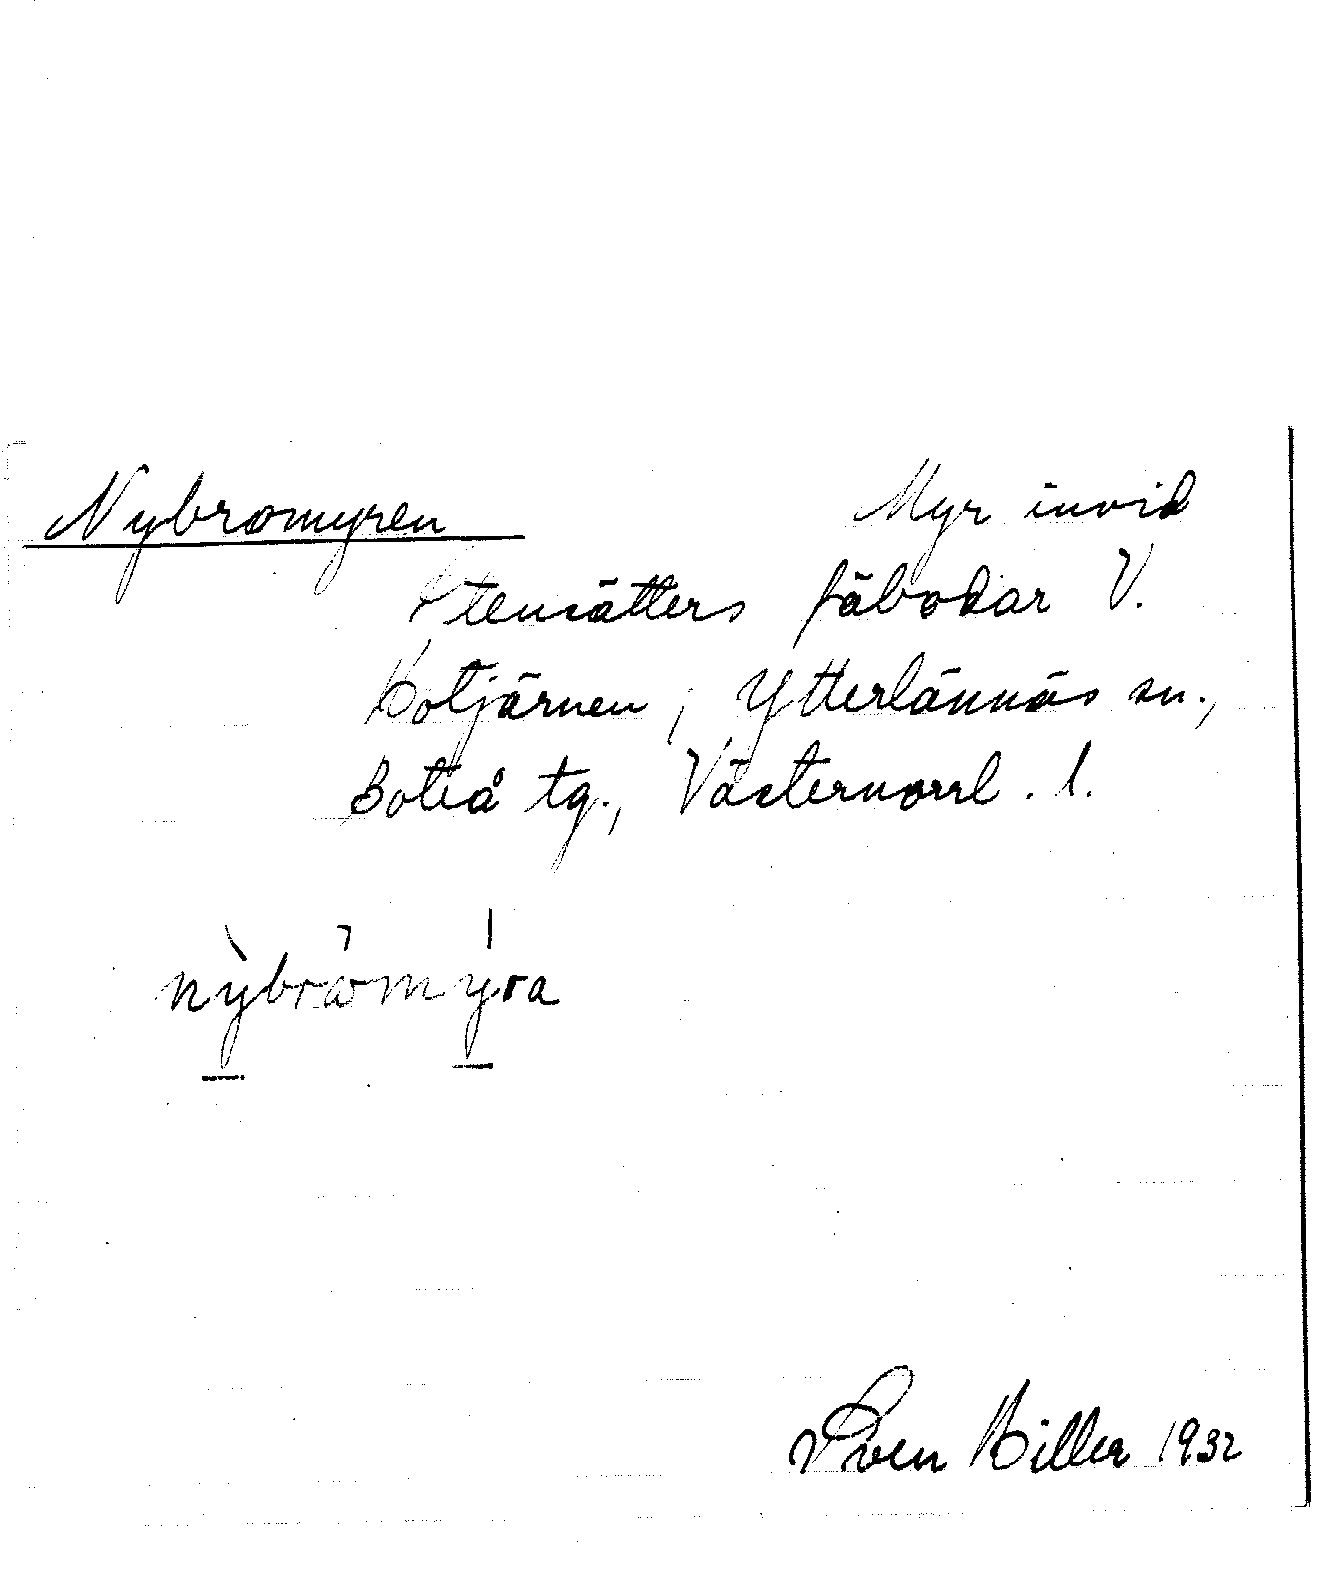 Nybromyren Myr invid
Stensätters fäbodar V.
Botjärnen, Ytterlännäs sn.,
Boteå tg., Västernorrl. l.
nỳbròmýra
Sven Biller 1932